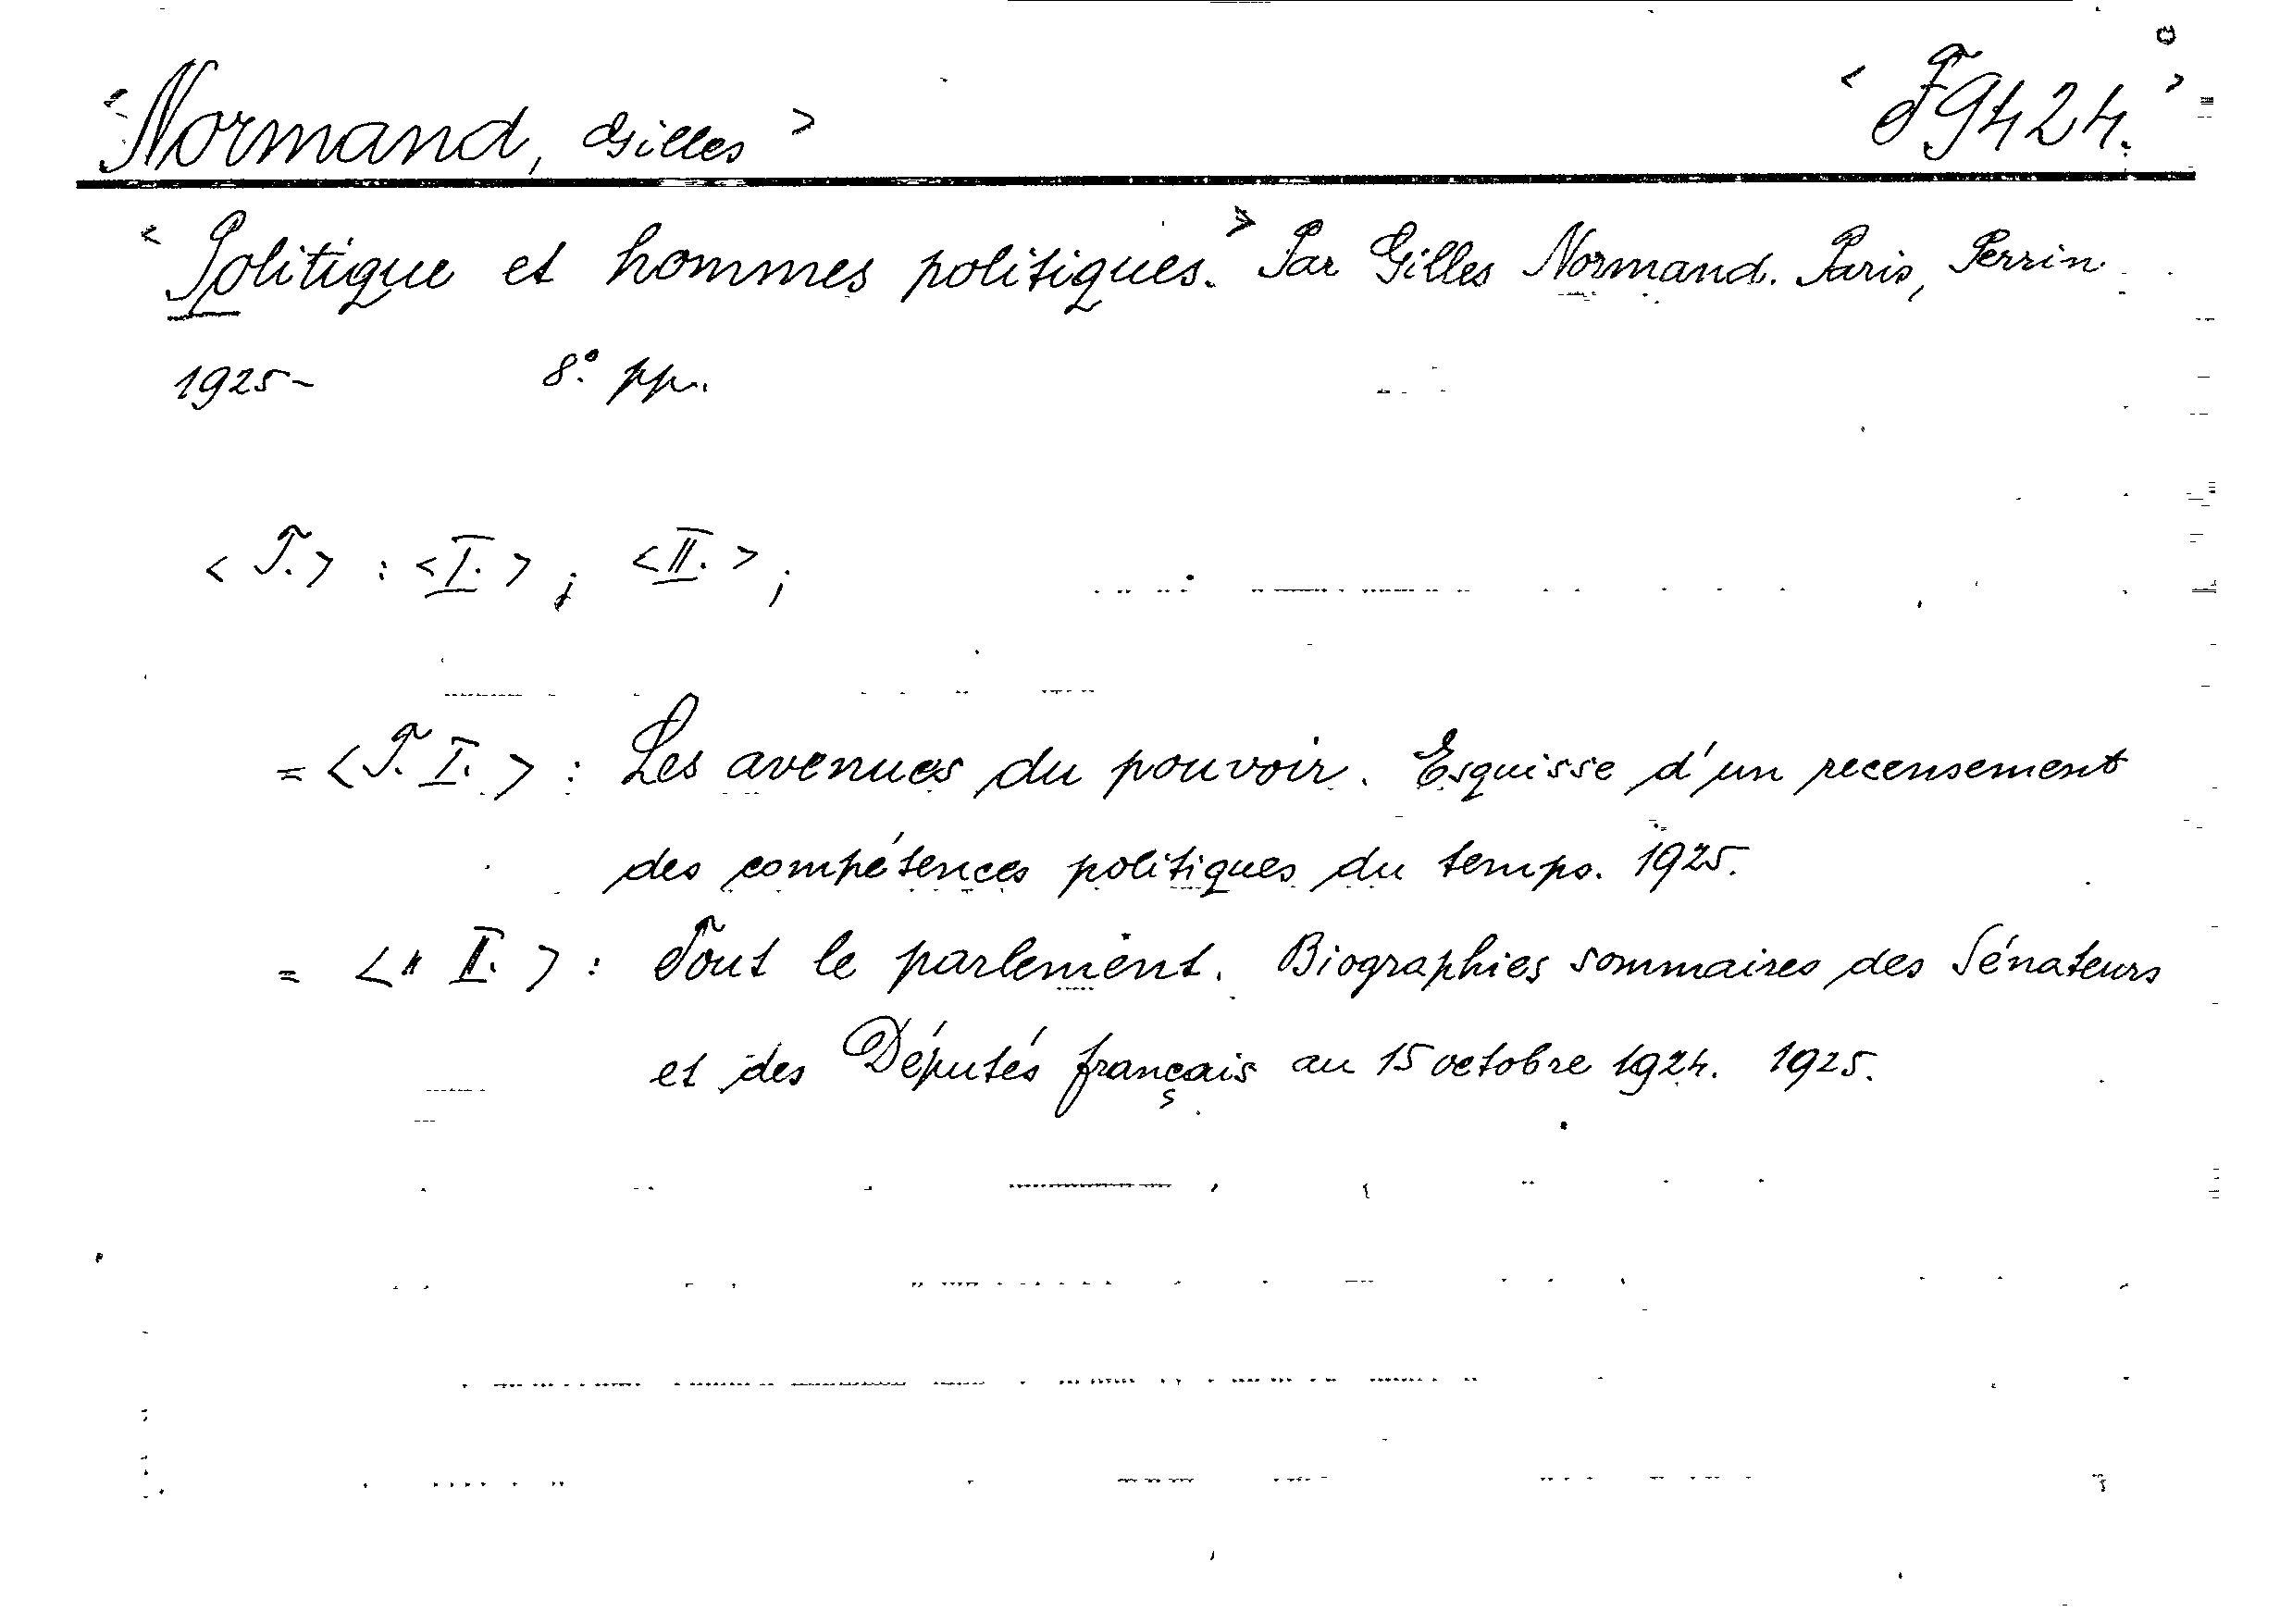 <Normand, Gilles> <F9424.>
<Politique et hommes politiques.> Par Gilles Normand. Paris, Perrin
1925- 8° pp.
<T.> : <I.> ; <II.> ;
= <T. I.> : Les avenues du pouvoir. Esquisse d'un recensement
des compétences politiques du temps. 1925.
= <" II.> : Tout le parlement. Biographies sommaires des Sénateurs
et des Députés français au 15 octobre 1924. 1925.